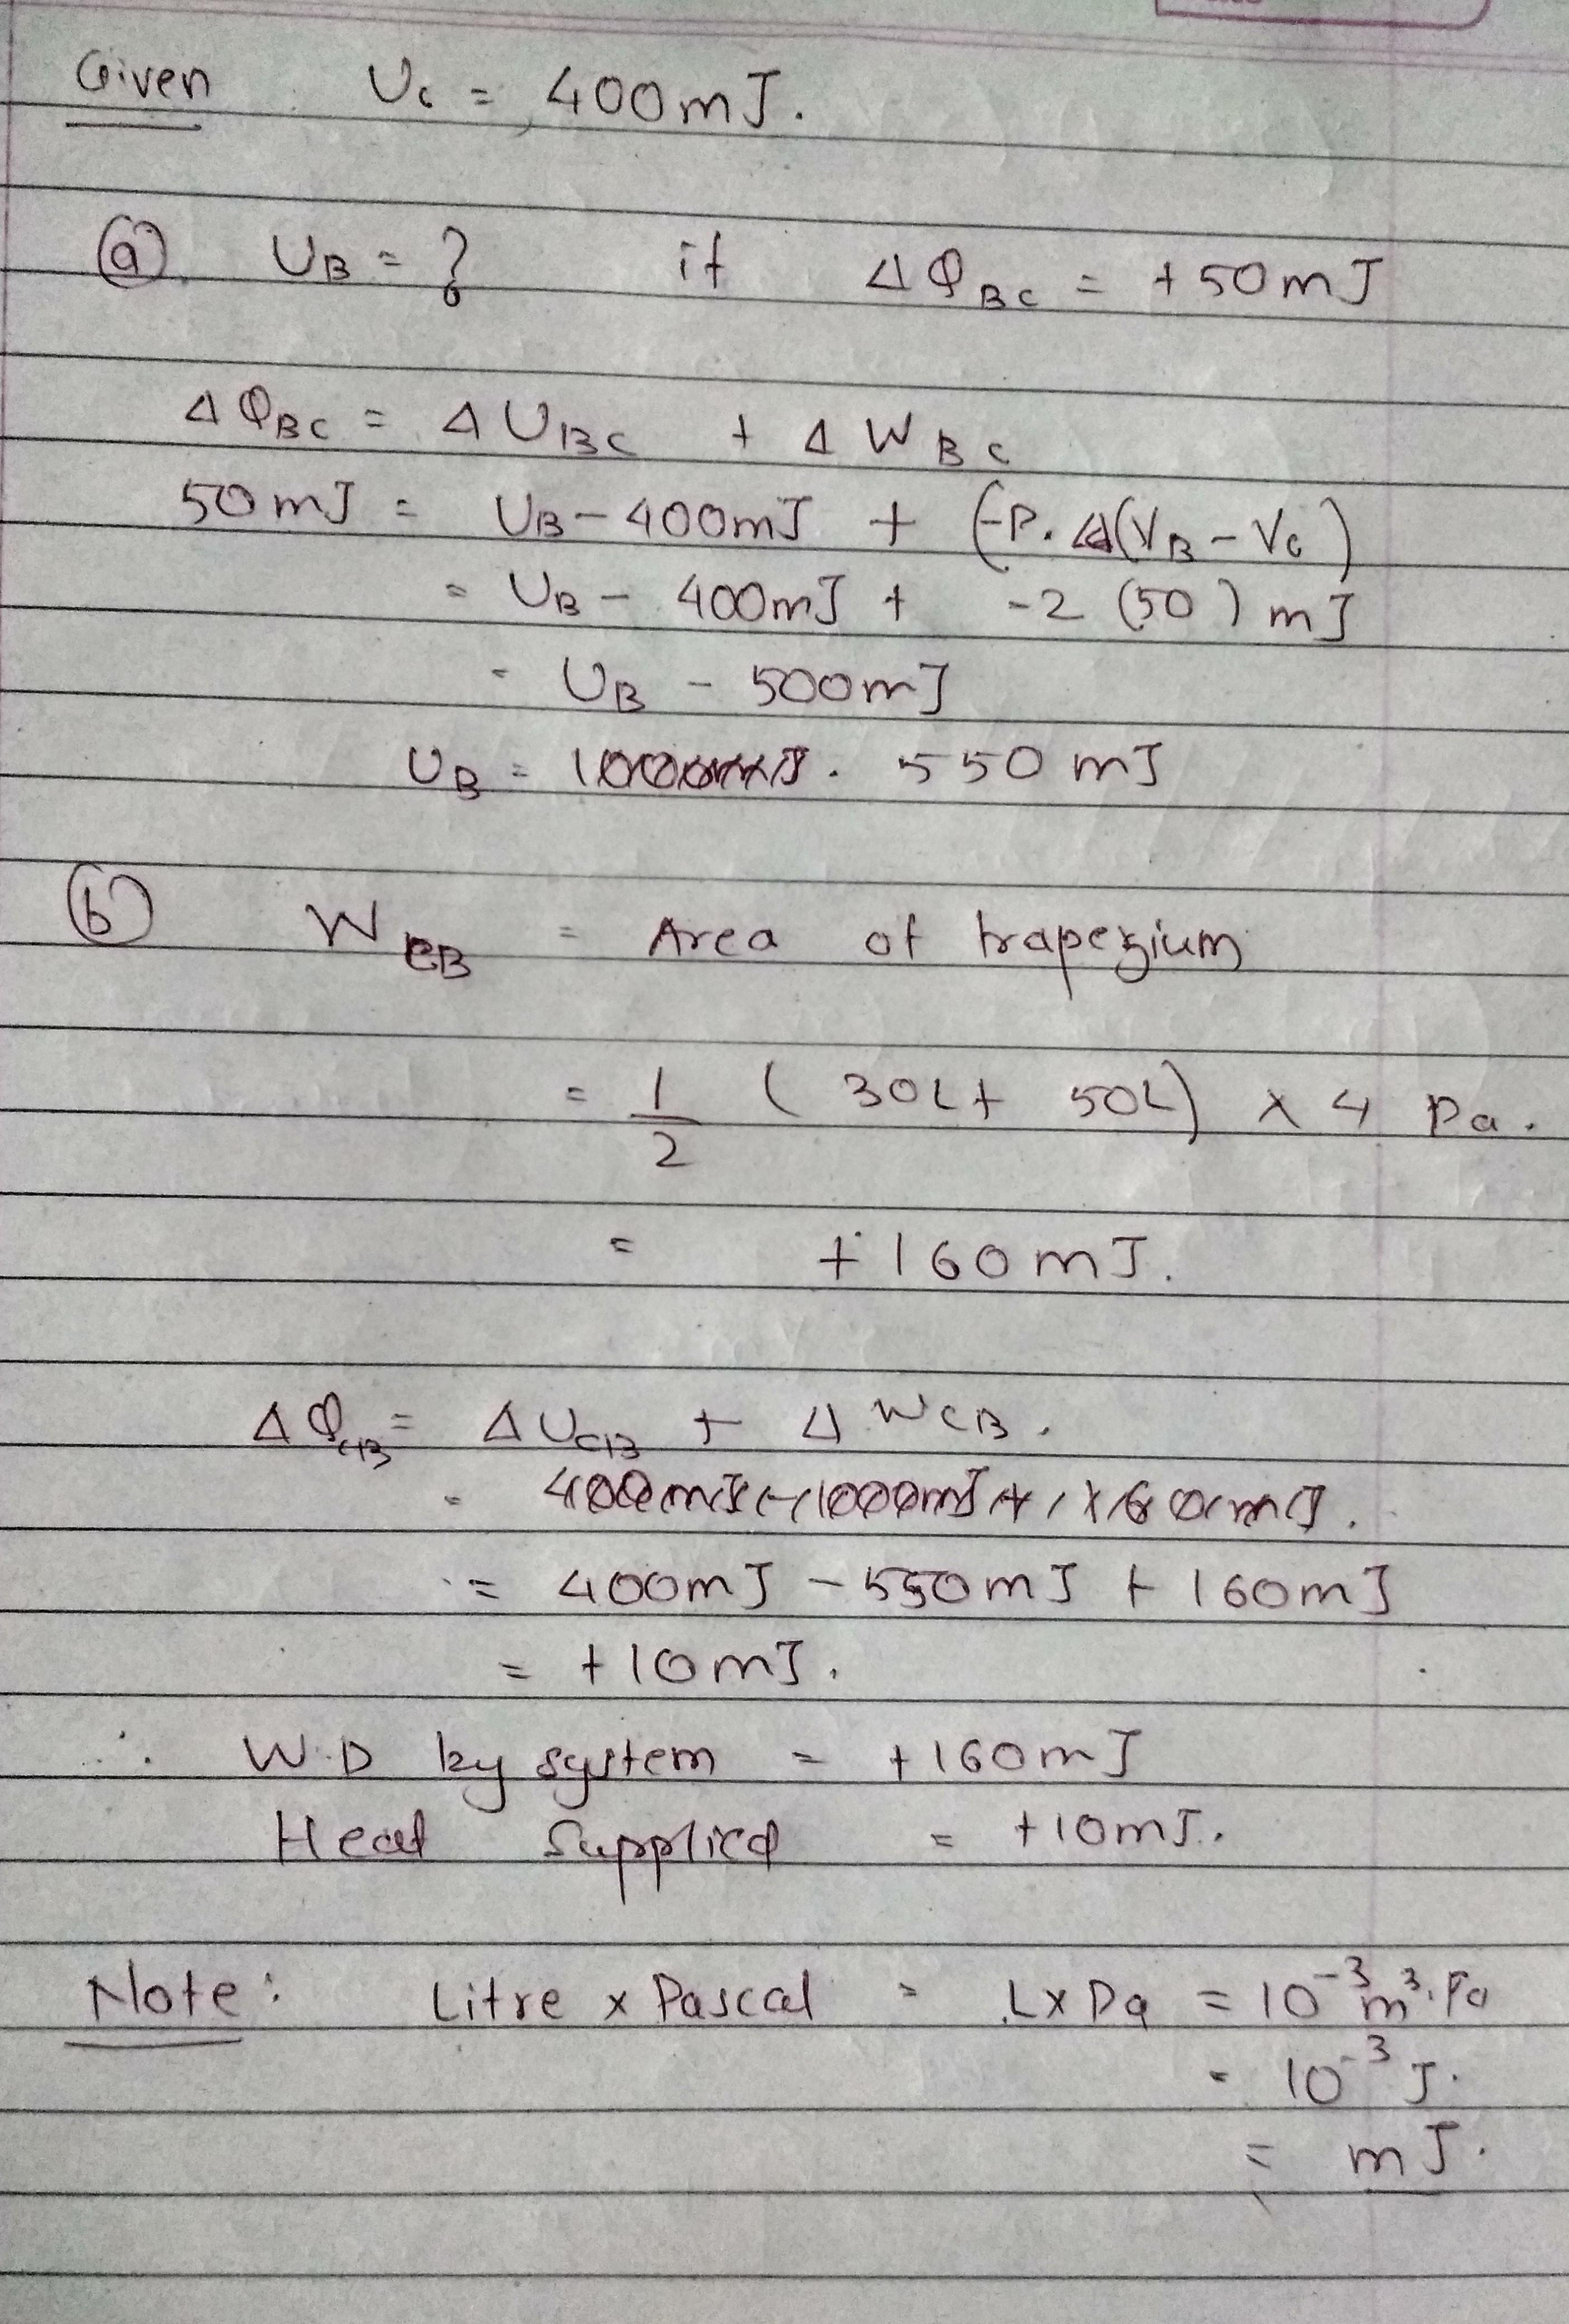 Given Uc = 400mJ.
(a) UB = ? if ΔQBC = +50mJ
ΔQBC = ΔUBC + ΔWBC
50mJ = UB - 400mJ + (-P. (VB - Vc)
= UB - 400mJ + -2 (50) mJ
= UB - 500mJ
UB = 550 mJ
(b) WCB = Area of trapezium
= 1/2 (30L + 50L) x 4 Pa.
= +160mJ.
ΔQCB = ΔUCB + ΔWCB.
= 400mJ - 550mJ + 160mJ
= +10mJ.
∴ W.D by system = +160mJ
Heat Supplied = +10mJ.
Note: Litre x Pascal = L x Pa = 10⁻³ m³.Pa
= 10⁻³ J.
= mJ.